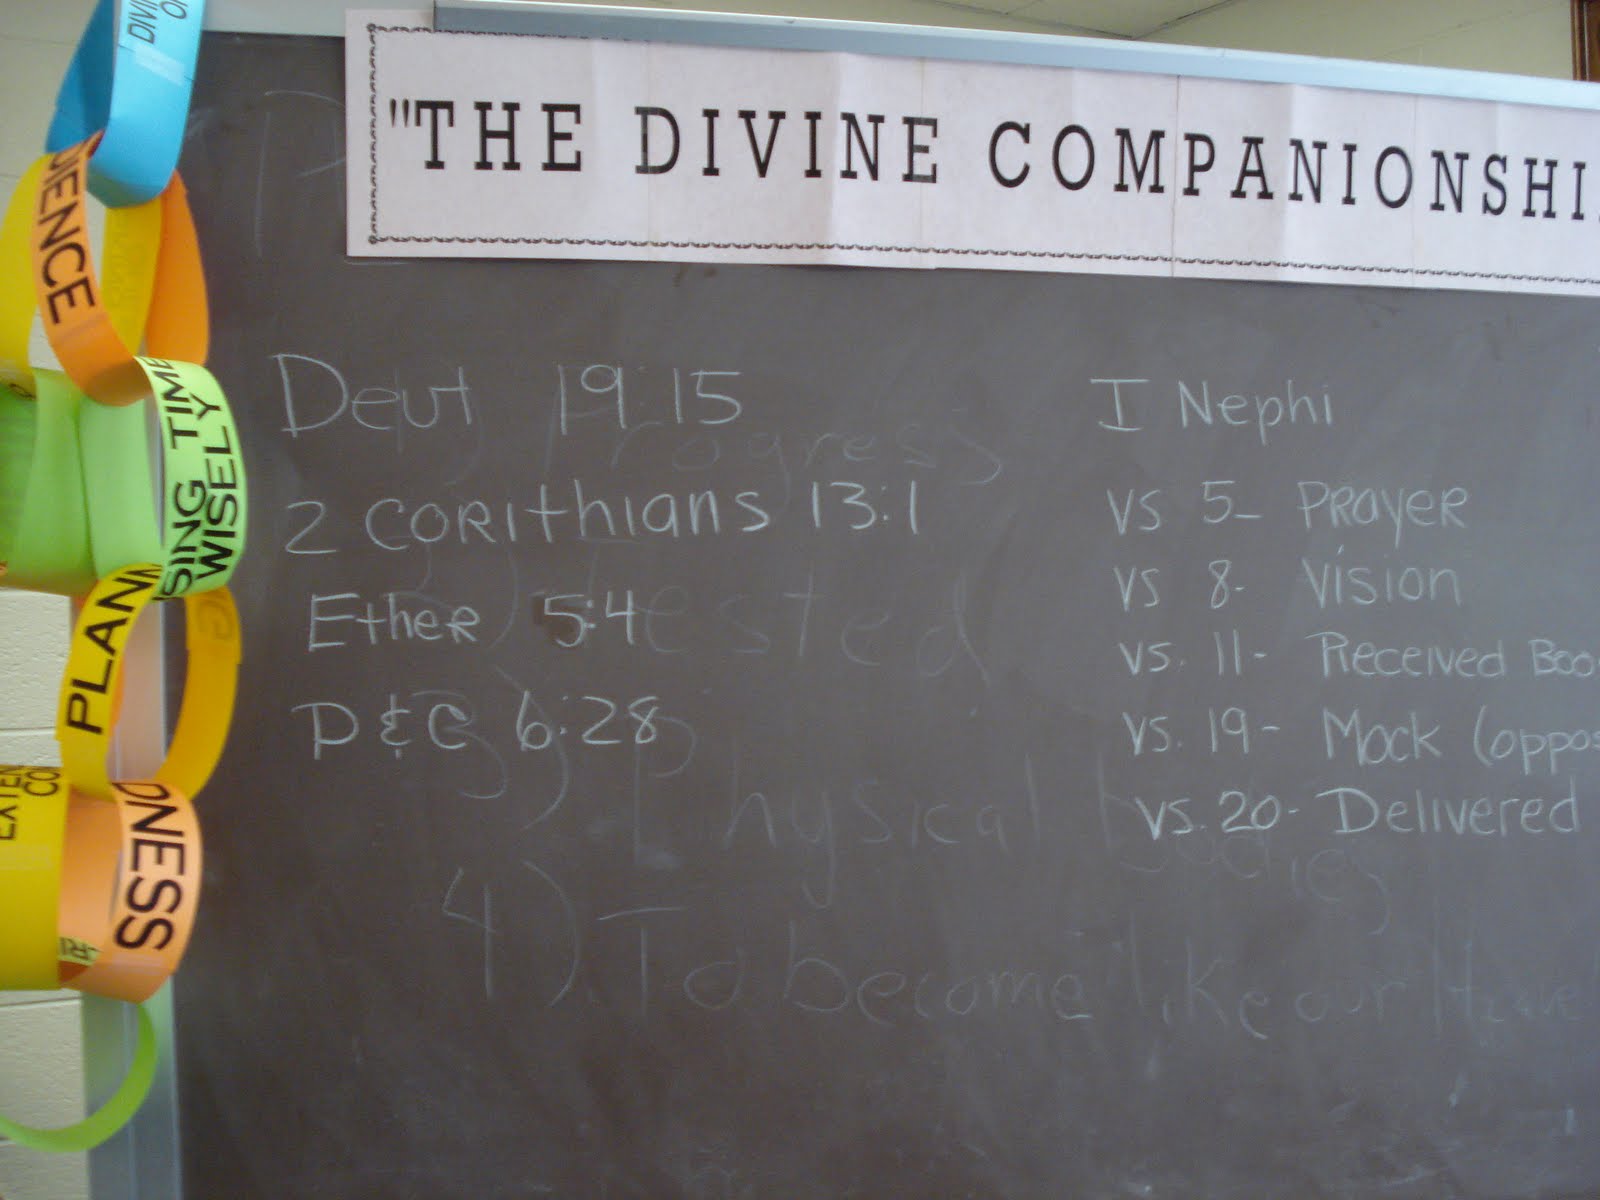 "THE DIVINE COMPANIONSHI
Deut 19:15
2 CORIthians 13:1
Ether 5:4
D & C 6:28
I Nephi
VS 5- PRayer
VS 8- Vision
VS. 11- Received Boo
VS. 19- Mock (oppos
VS. 20- Delivered
Progress
2) tested
3) Physical bodies
4) To become like our Heave
DIVI
DIENCE
SING TIME
WISELY
PLANN
EXTEN
CO
DNESS